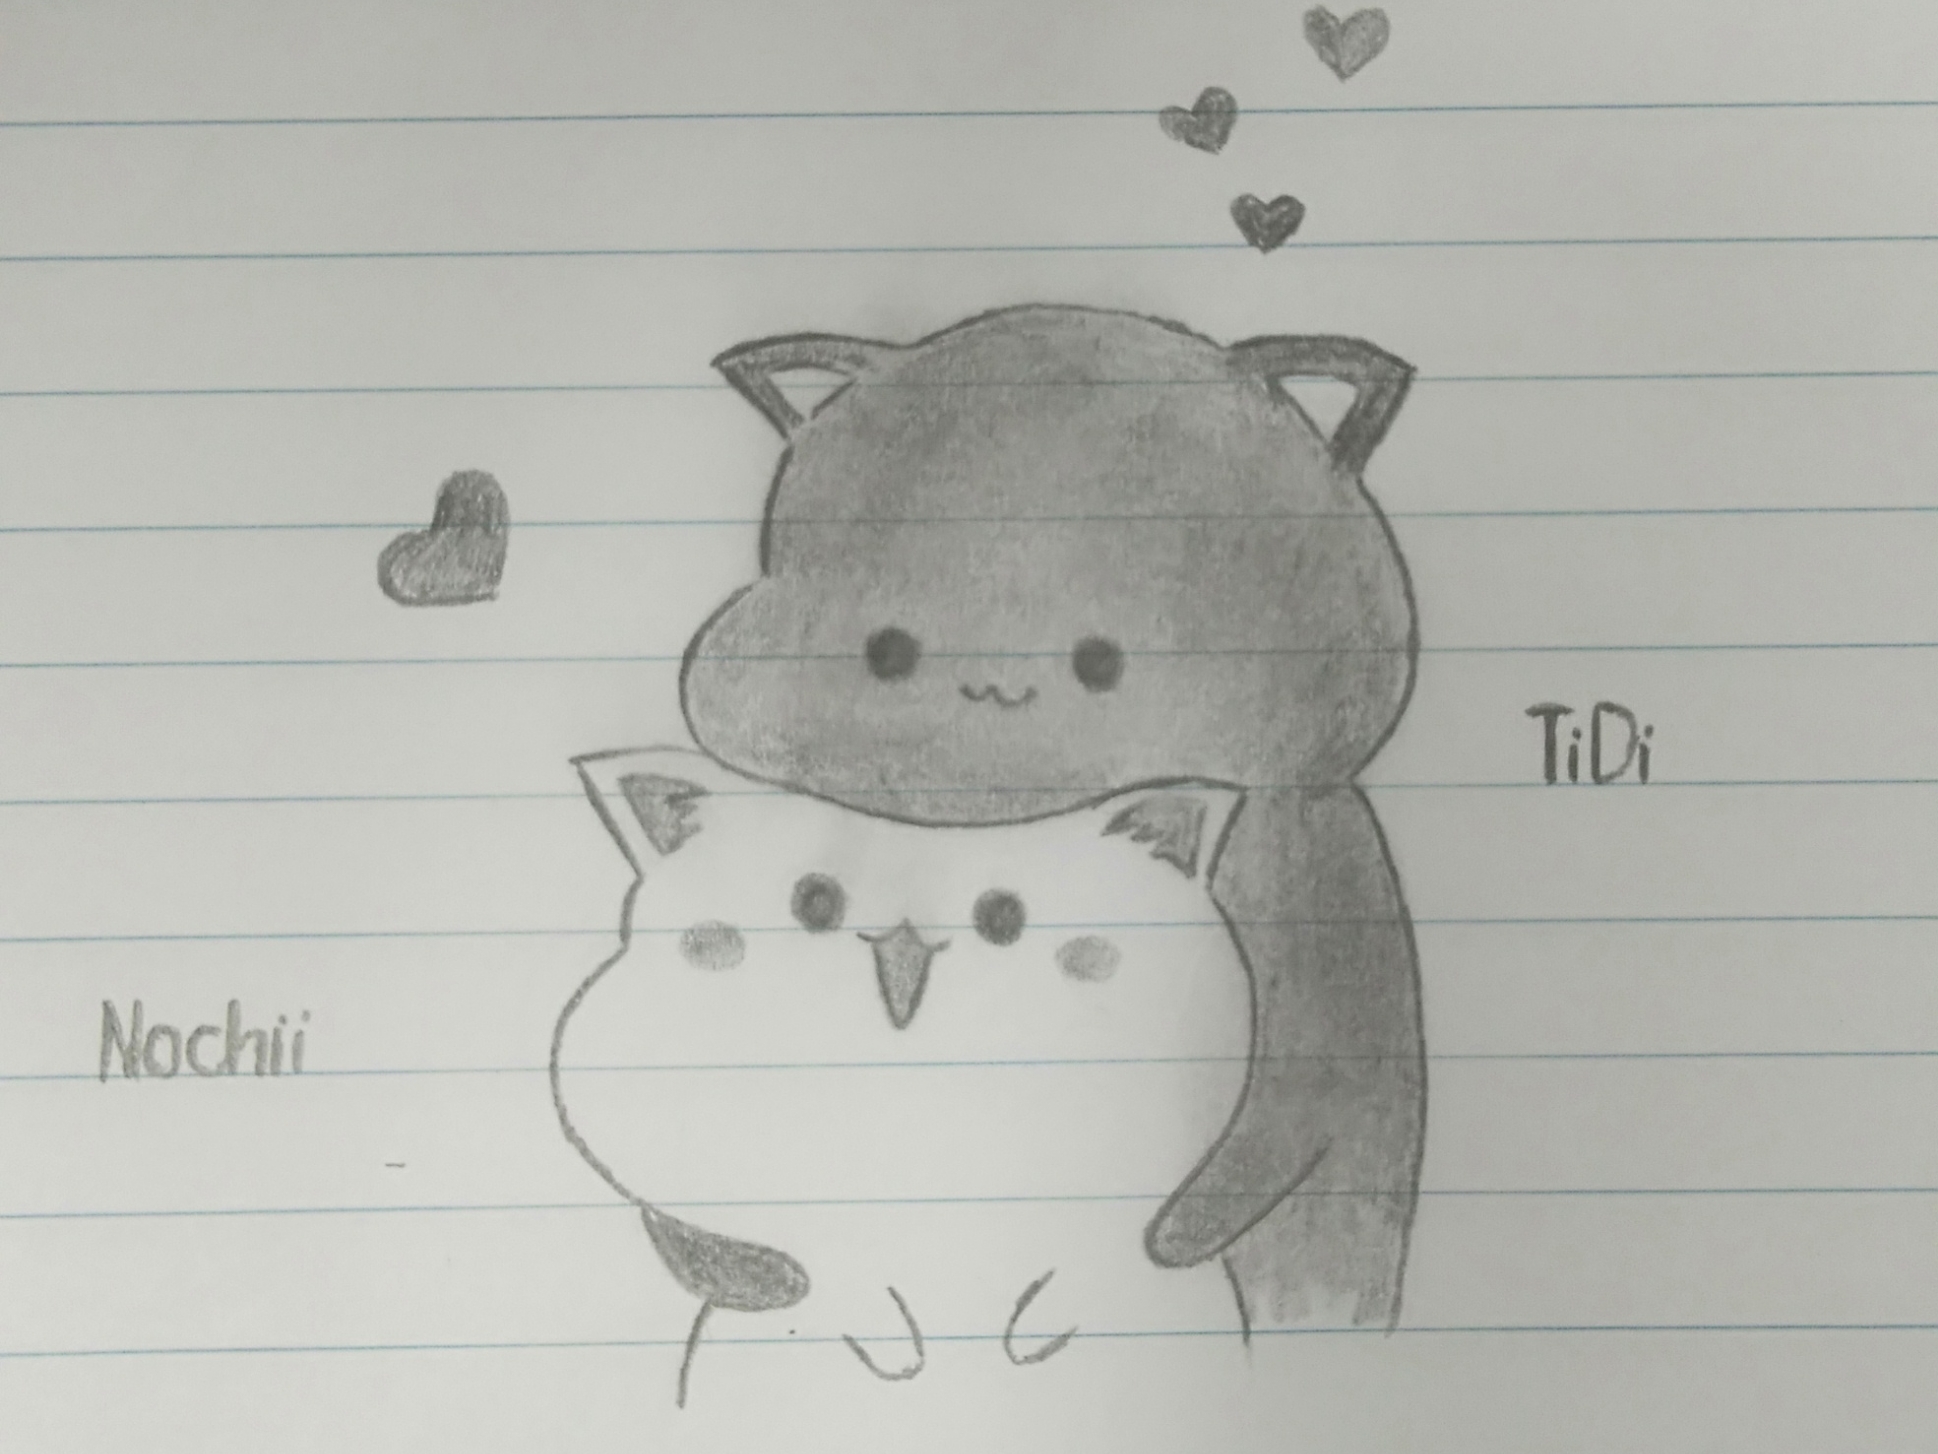 TiDi
Nochii